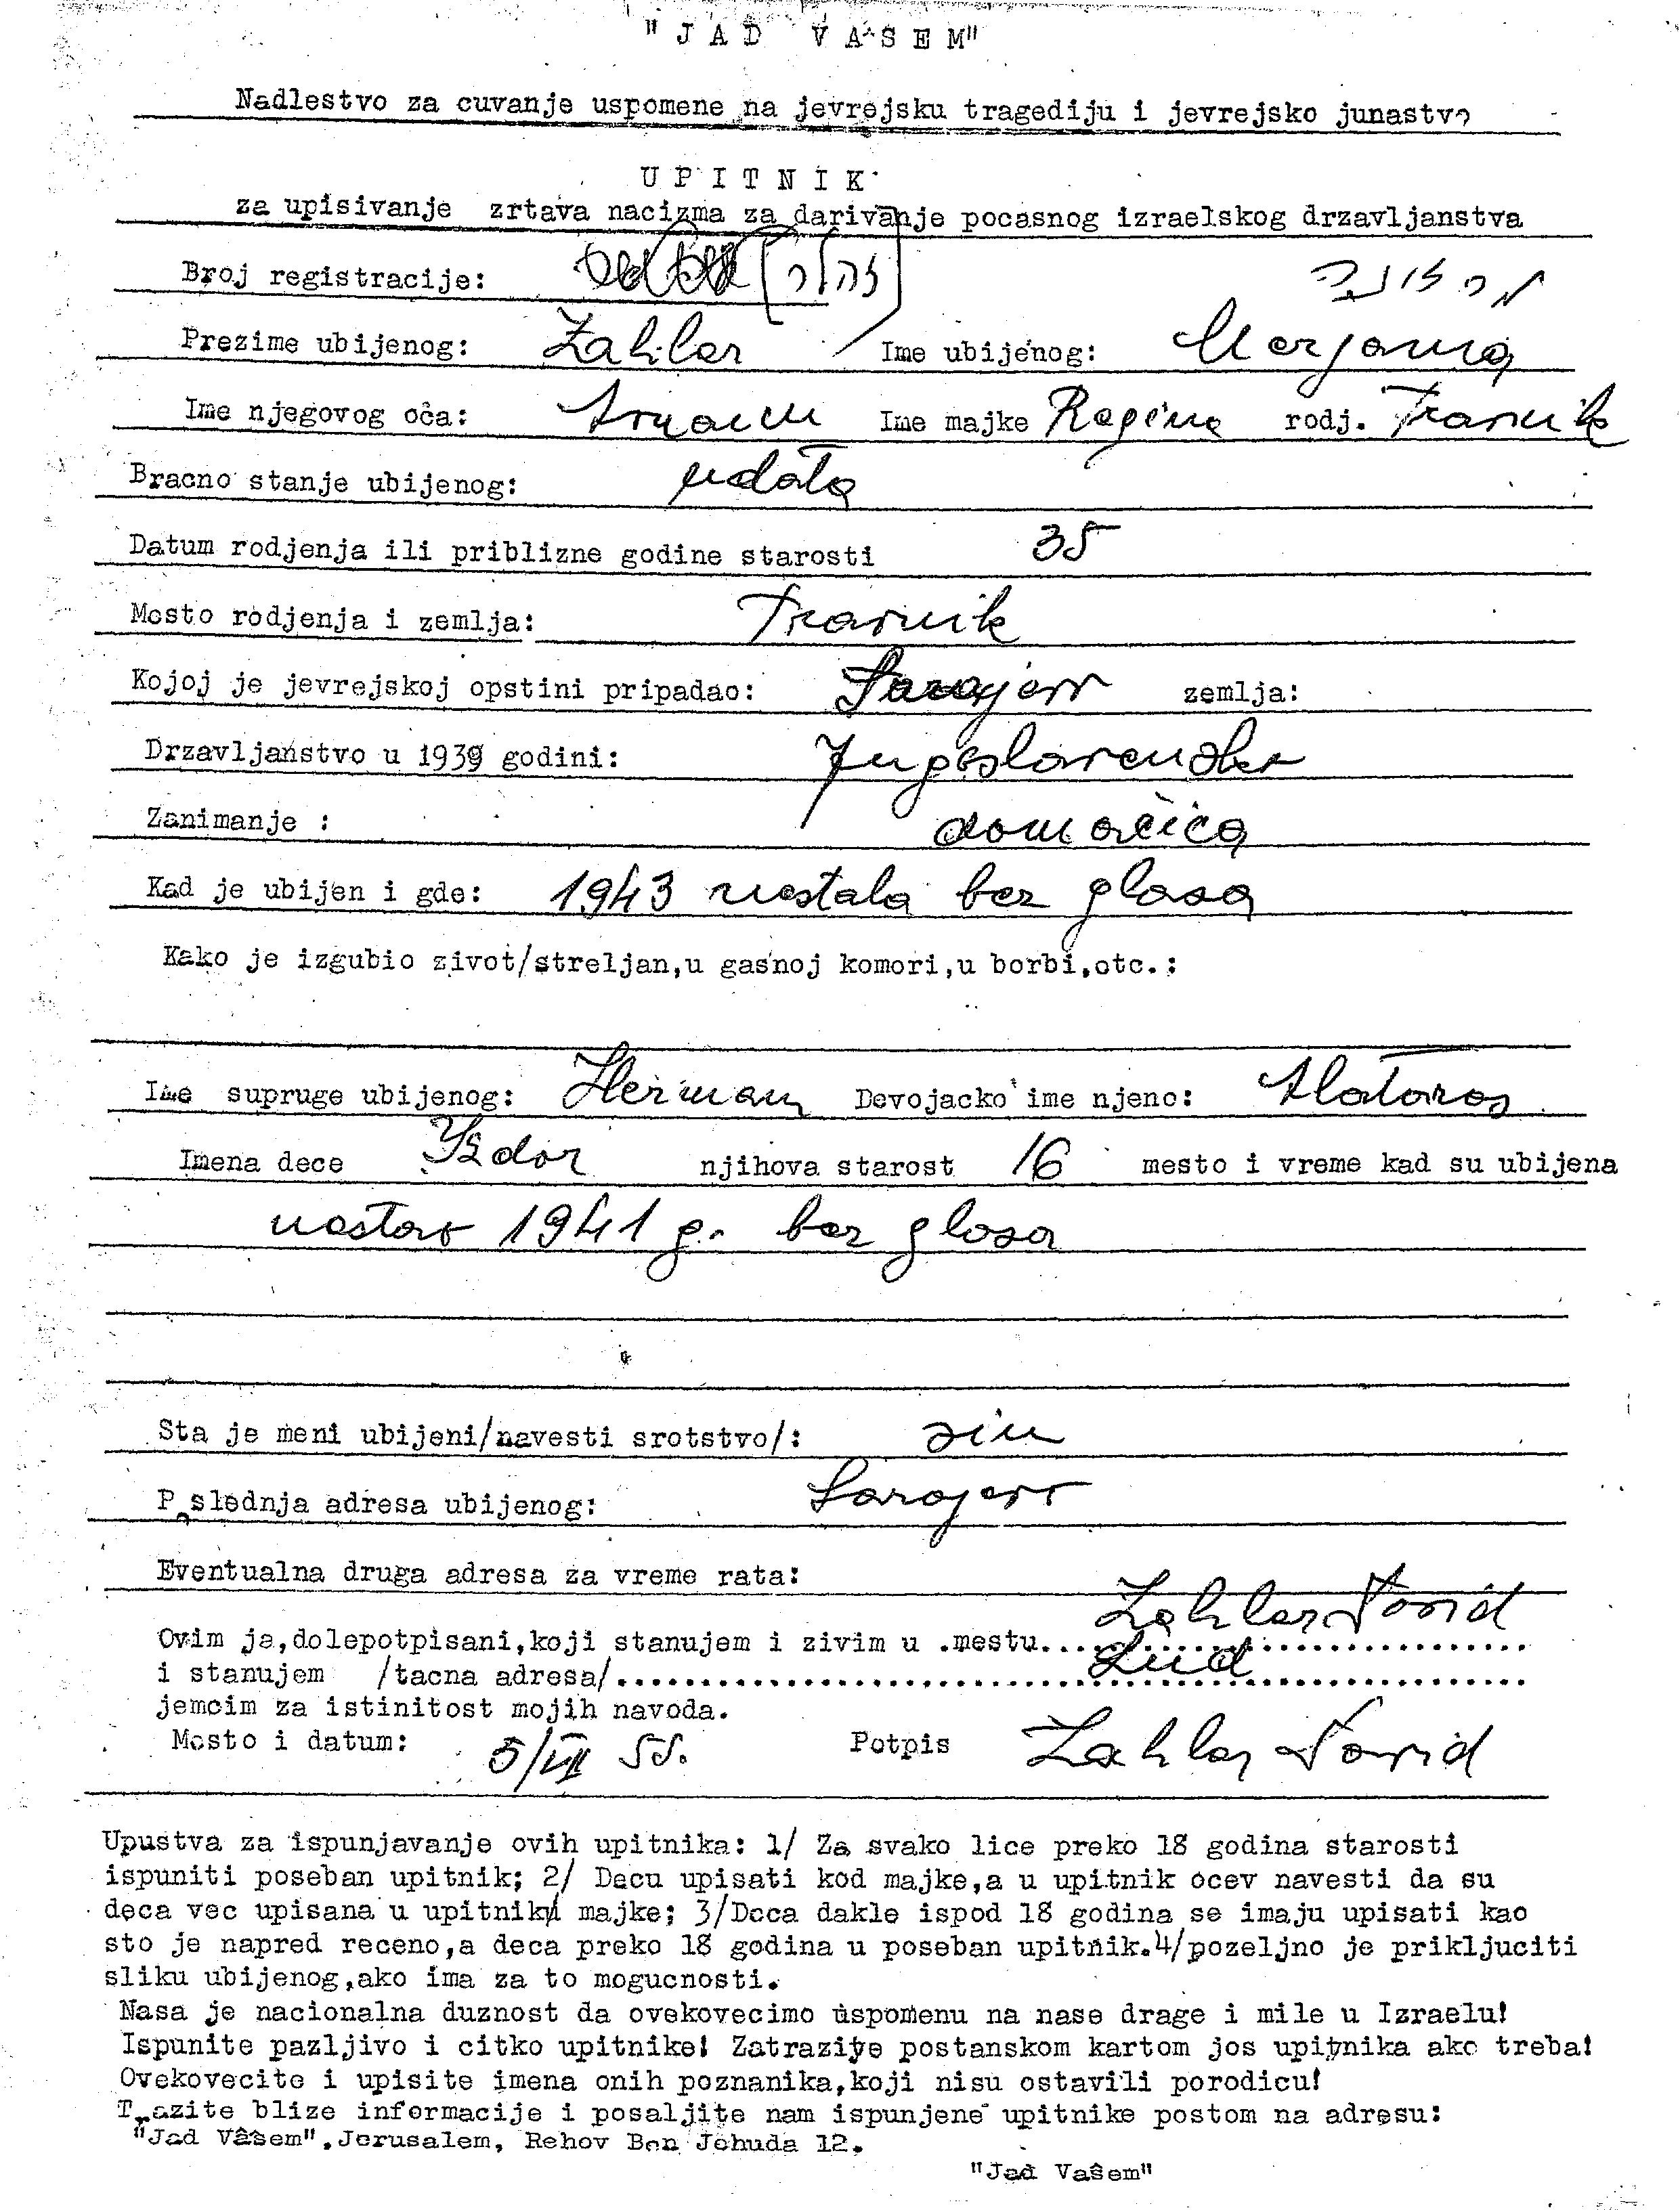 "JAD VAŠEM"
Nadlestvo za cuvanje uspomene na jevrejsku tragediju i jevrejsko junastvo
UPITNIK
za upisivanje zrtava nacizma za darivanje pocasnog izraelskog drzavljanstva
Broj registracije:
Prezime ubijenog: Zahler Ime ubijenog: Merjama
Ime njegovog oča: Ime majke Regina rodj. Travnik
Bracno stanje ubijenog: udata
Datum rodjenja ili priblizne godine starosti 35
Mesto rodjenja i zemlja: Travnik
Kojoj je jevrejskoj opstini pripadao: Sarajevo zemlja:
Drzavljanstvo u 1939 godini: Jugoslavenska
Zanimanje : domaćica
Kad je ubijen i gde: 1943 nestala bez glasa
Kako je izgubio zivot/streljan,u gasnoj komori,u borbi,etc.:
Ime supruge ubijenog: Herman Devojacko ime njeno: Alataras
Imena dece Isdor njihova starost 16 mesto i vreme kad su ubijena
nestao 1941 g. bez glasa
Sta je meni ubijeni/navesti srotstvo/: sin
Poslednja adresa ubijenog: Sarajevo
Eventualna druga adresa za vreme rata:
Zahler David
Ovim ja,dolepotpisani,koji stanujem i zivim u .mestu..............................
i stanujem /tacna adresa/.................... Lud ....................
jemcim za istinitost mojih navoda.
Mesto i datum: 5/VII 55. Potpis Zahler David
Upustva za ispunjavanje ovih upitnika: 1/ Za svako lice preko 18 godina starosti
ispuniti poseban upitnik; 2/ Decu upisati kod majke,a u upitnik ocev navesti da su
deca vec upisana u upitniki majke; 3/Deca dakle ispod 18 godina se imaju upisati kao
sto je napred receno,a deca preko 18 godina u poseban upitnik.4/pozeljno je prikljuciti
sliku ubijenog,ako ima za to mogucnosti.
Nasa je nacionalna duznost da ovekovecimo uspomenu na nase drage i mile u Izraelu!
Ispunite pazljivo i citko upitnike! Zatrazite postanskom kartom jos upitnika ako treba!
Ovekovecite i upisite imena onih poznanika,koji nisu ostavili porodicu!
Trazite blize informacije i posaljite nam ispunjene upitnike postom na adresu:
"Jad Vašem",Jerusalem, Rehov Ben Jehuda 12.
"Jad Vašem"